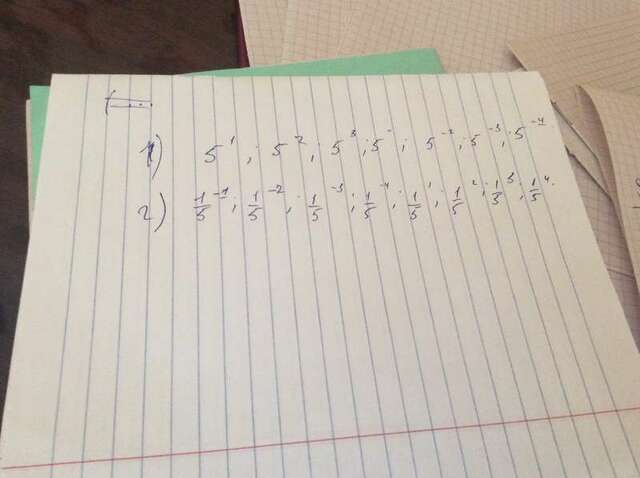 1) 5¹; 5²; 5³; 5⁻; 5⁻²; 5⁻³; 5⁻⁴
2) 1/5⁻¹; 1/5⁻²; 1/5⁻³; 1/5⁻⁴; 1/5¹; 1/5²; 1/5³; 1/5⁴.